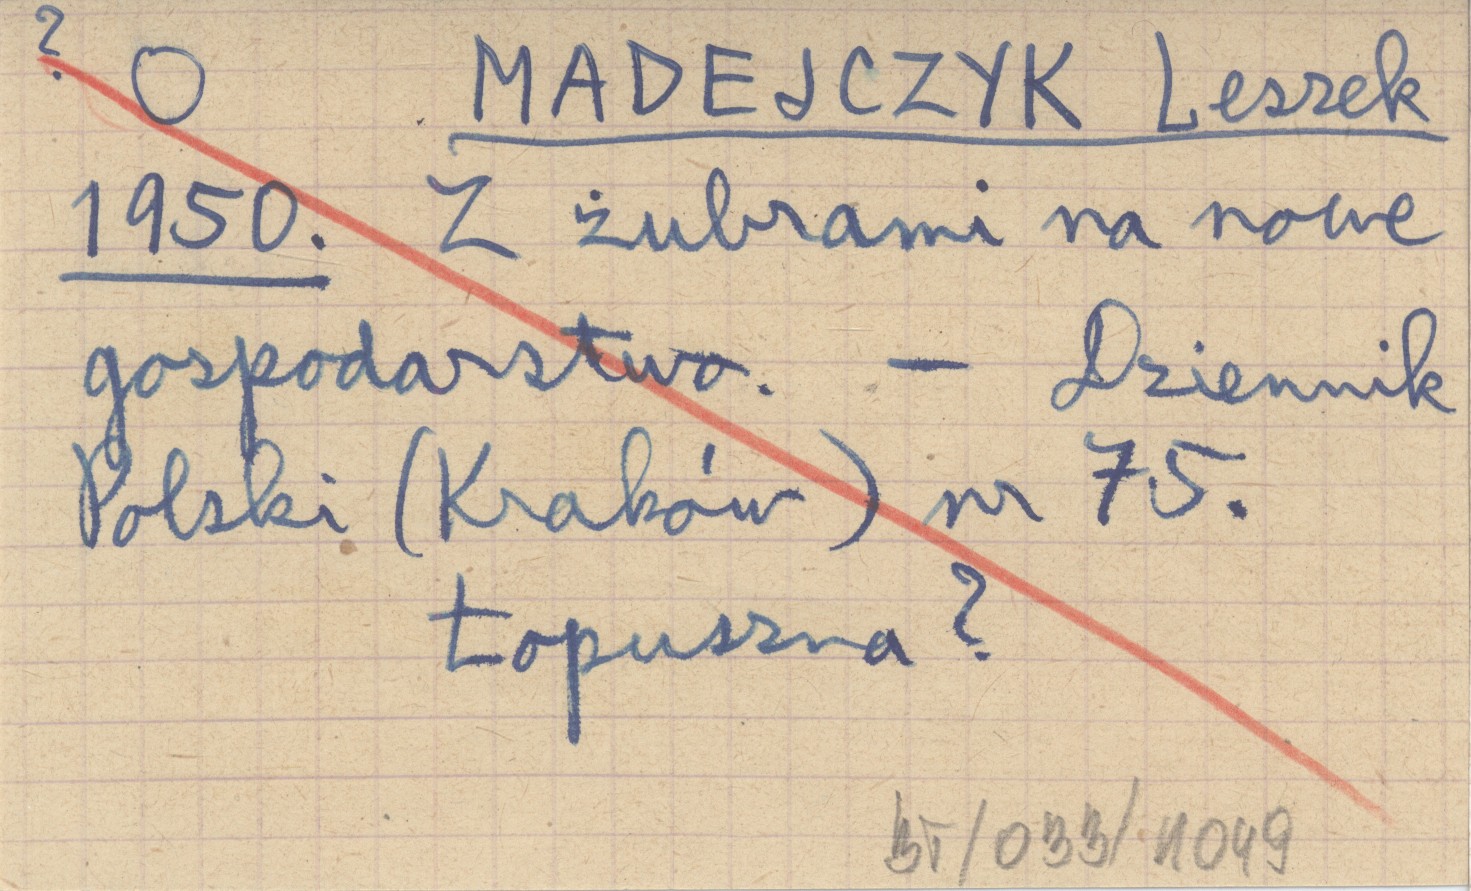 ? O MADEJCZYK Leszek
1950. Z żubrami na nowe
gospodarstwo. – Dziennik
Polski (Kraków) nr 75.
Łopuszna?
BT/033/1049